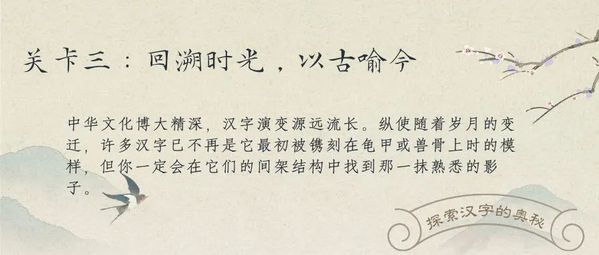 关卡三：回溯时光，以古喻今
中华文化博大精深，汉字演变源远流长。纵使随着岁月的变
迁，许多汉字已不再是它最初被镌刻在龟甲或兽骨上时的模
样，但你一定会在它们的间架结构中找到那一抹熟悉的影
子。
探索汉字的奥秘